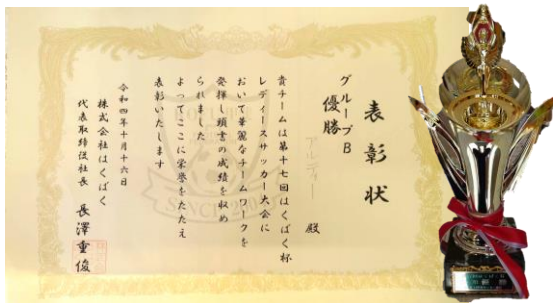 表彰状
グループB
優勝
アルディー 殿
貴チームは第十七回はくばく杯
レディースサッカー大会に
おいて華麗なチームワークを
発揮し頭書の成績を収め
られました
よってここに栄誉をたたえ
表彰いたします
令和四年十月十六日
株式会社はくばく
代表取締役社長 長澤重俊
優勝